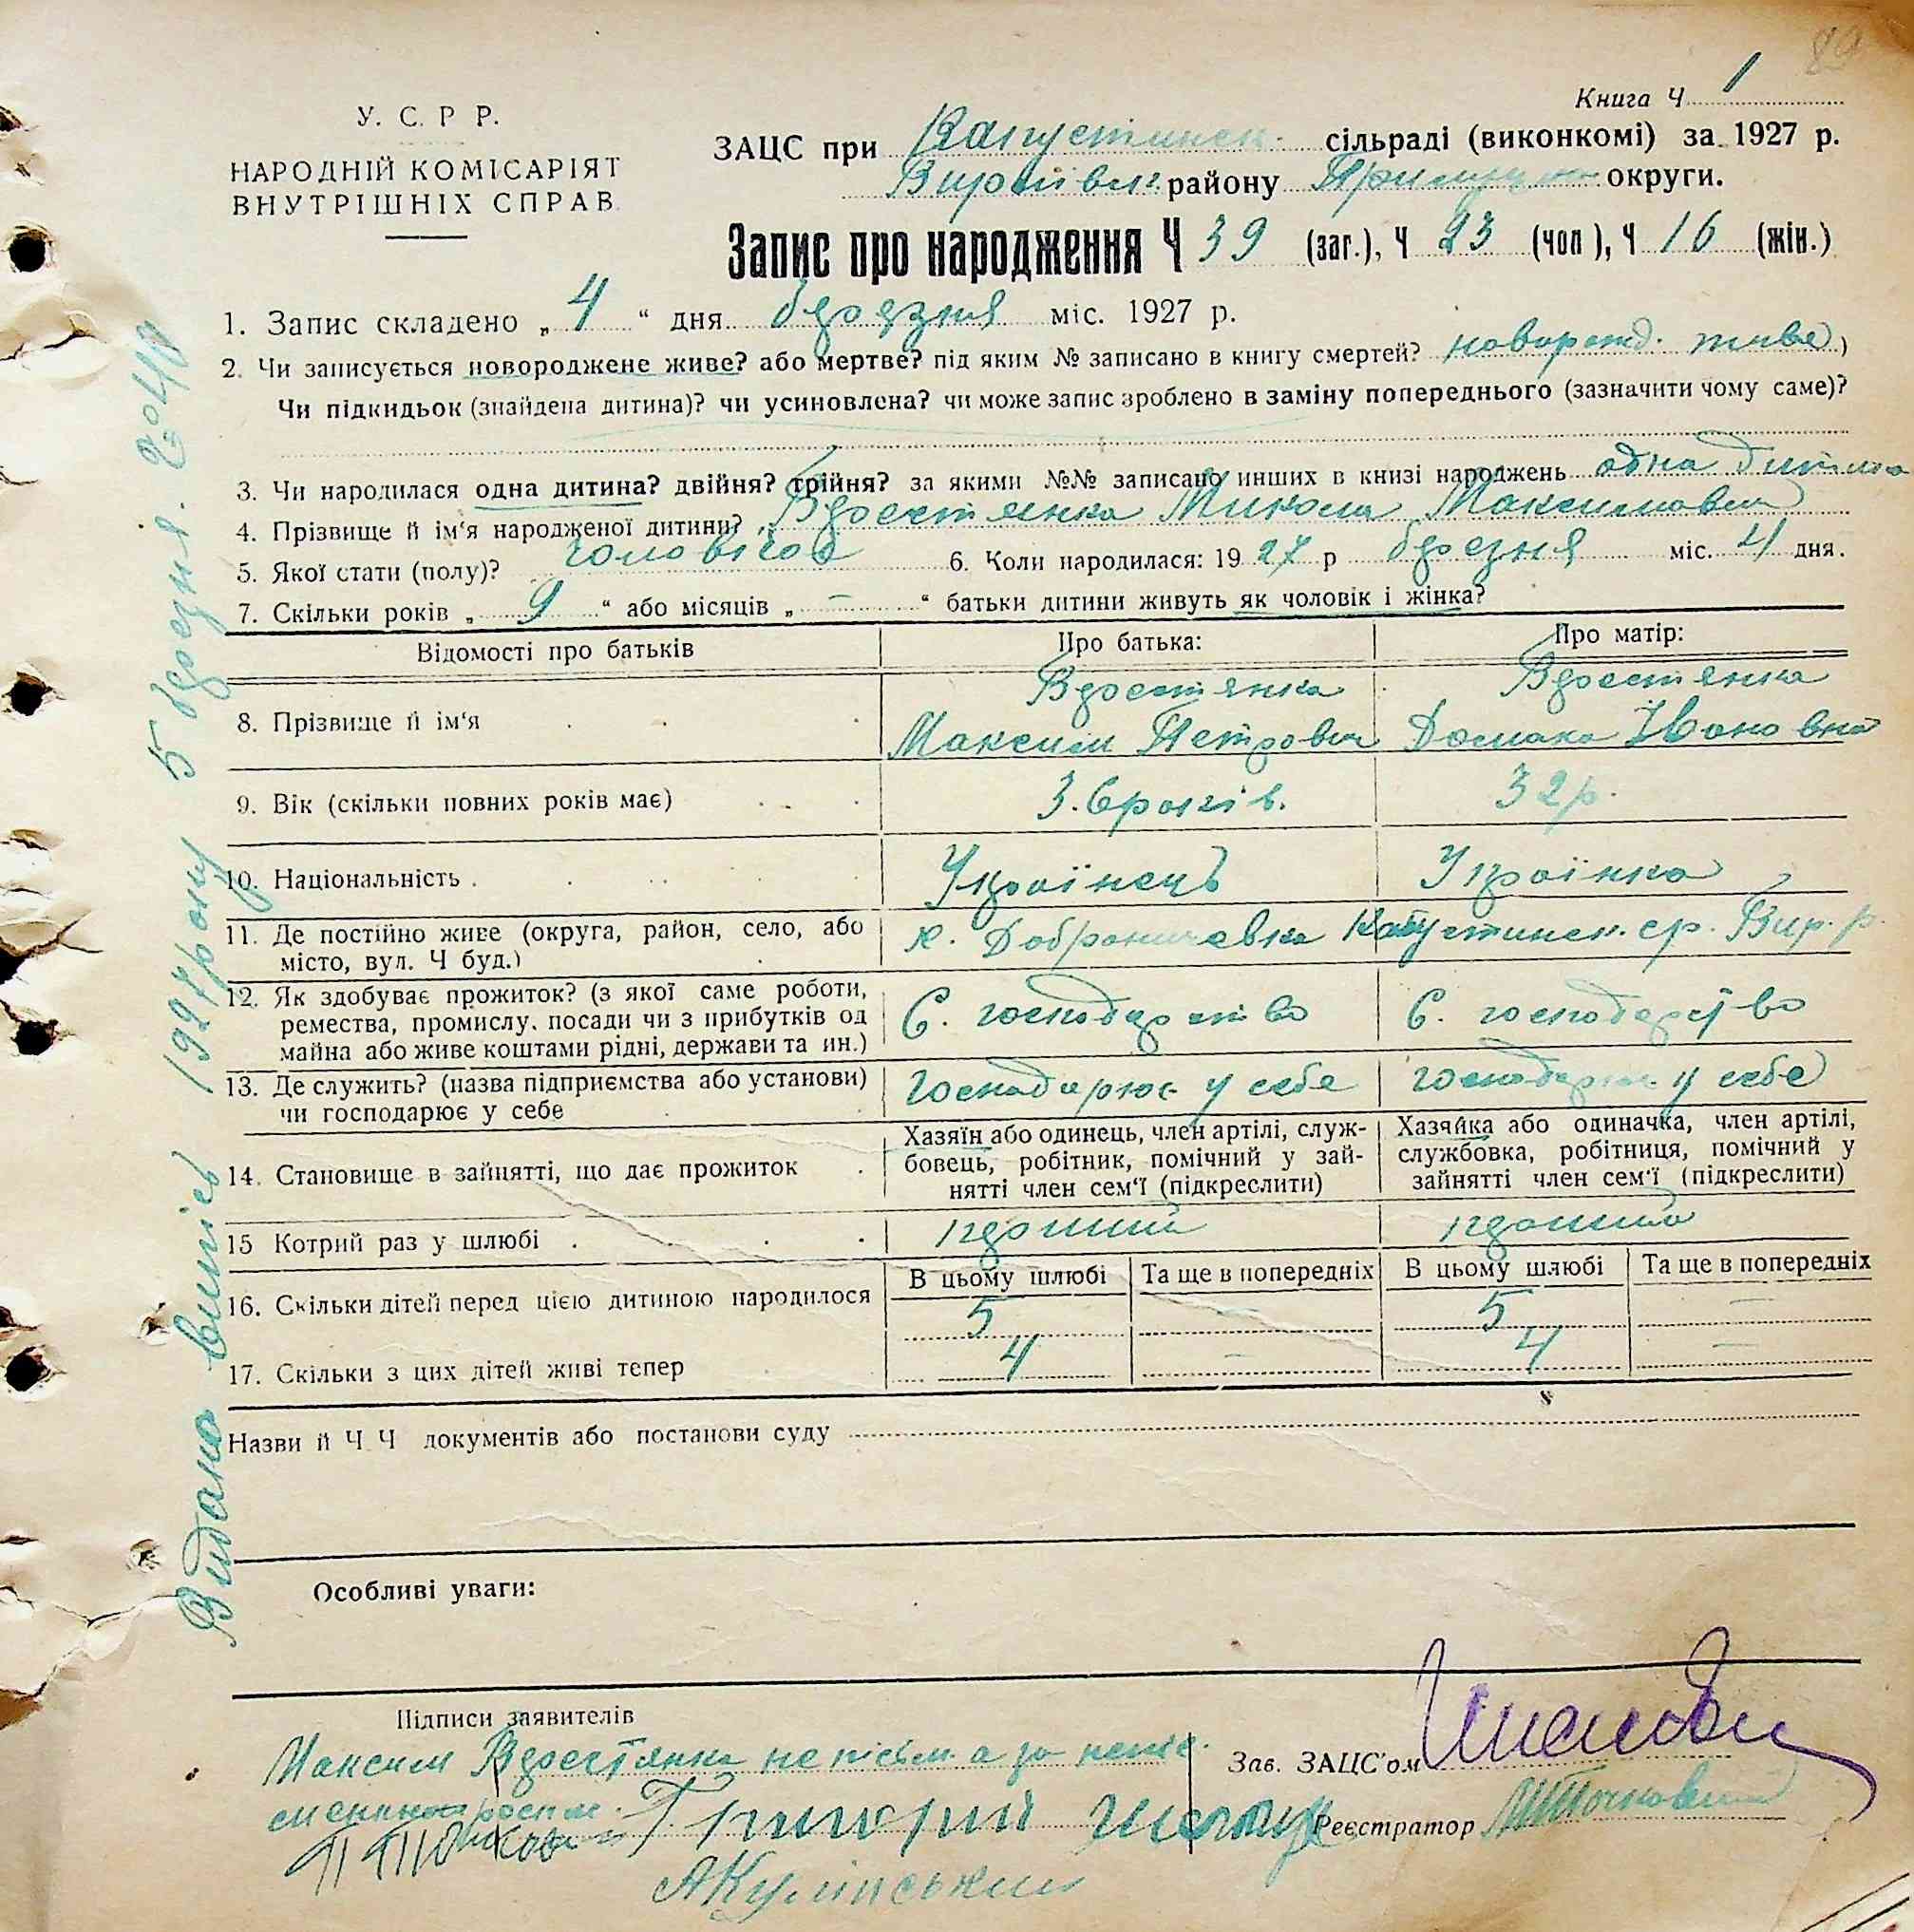 89
Книга Ч. 1
У. С. Р Р.
НАРОДНІЙ КОМІСАРІЯТ
ВНУТРІШНІХ СПРАВ
ЗАЦС при Капустинск. сільраді (виконкомі) за 1927 р.
району округи.
Запис про народження Ч 39 (заг.), Ч 23 (чол), Ч 16 (жін.)
1. Запис складено „ 4 “ дня березня міс. 1927 р.
2. Чи записується новороджене живе? або мертве? під яким № записано в книгу смертей? живе)
Чи підкидьок (знайдена дитина)? чи усиновлена? чи може запис зроблено в заміну попереднього (зазначити чому саме)?
3. Чи народилася одна дитина? двійня? трійня? за якими №№ записано инших в книзі народжень одна дитина
4. Прізвище й ім‘я народженої дитини? Микола Максимович
5. Якої стати (полу)? чоловічоі 6. Коли народилася: 1927 р березня міс. 4 дня.
7. Скільки років „ 9 “ або місяців „ — “ батьки дитини живуть як чоловік і жінка?
Відомості про батьків Про батька: Про матір:
8. Прізвище й ім‘я
Максим Петрович Домаха Івановна
9. Вік (скільки повних років має) 36 років. 32 р.
10. Національність Українець Українка
11. Де постійно живе (округа, район, село, або місто, вул. Ч буд.) х. Капустинск. ср. Вир. р.
12. Як здобуває прожиток? (з якої саме роботи, ремества, промислу, посади чи з прибутків од майна або живе коштами рідні, держави та ин.) С. господарство С. господарство
13. Де служить? (назва підприємства або установи) чи господарює у себе господарює у себе господарює у себе
14. Становище в зайнятті, що дає прожиток
Хазяїн або одинець, член артілі, служ-
бовець, робітник, помічний у зай-
нятті член сем‘ї (підкреслити)
Хазяйка або одиначка, член артілі,
службовка, робітниця, помічний у
зайнятті член сем‘ї (підкреслити)
15 Котрий раз у шлюбі
В цьому шлюбі Та ще в попередніх В цьому шлюбі Та ще в попередніх
16. Скільки дітей перед цією дитиною народилося 5 5 —
17. Скільки з цих дітей живі тепер 4 — 4 —
Назви й Ч Ч документів або постанови суду
Особливі уваги:
Підписи заявителів
Максим а за
Григорій
Зав. ЗАЦС'ом
Реєстратор
Видано випіс 1927 року 5 березня.